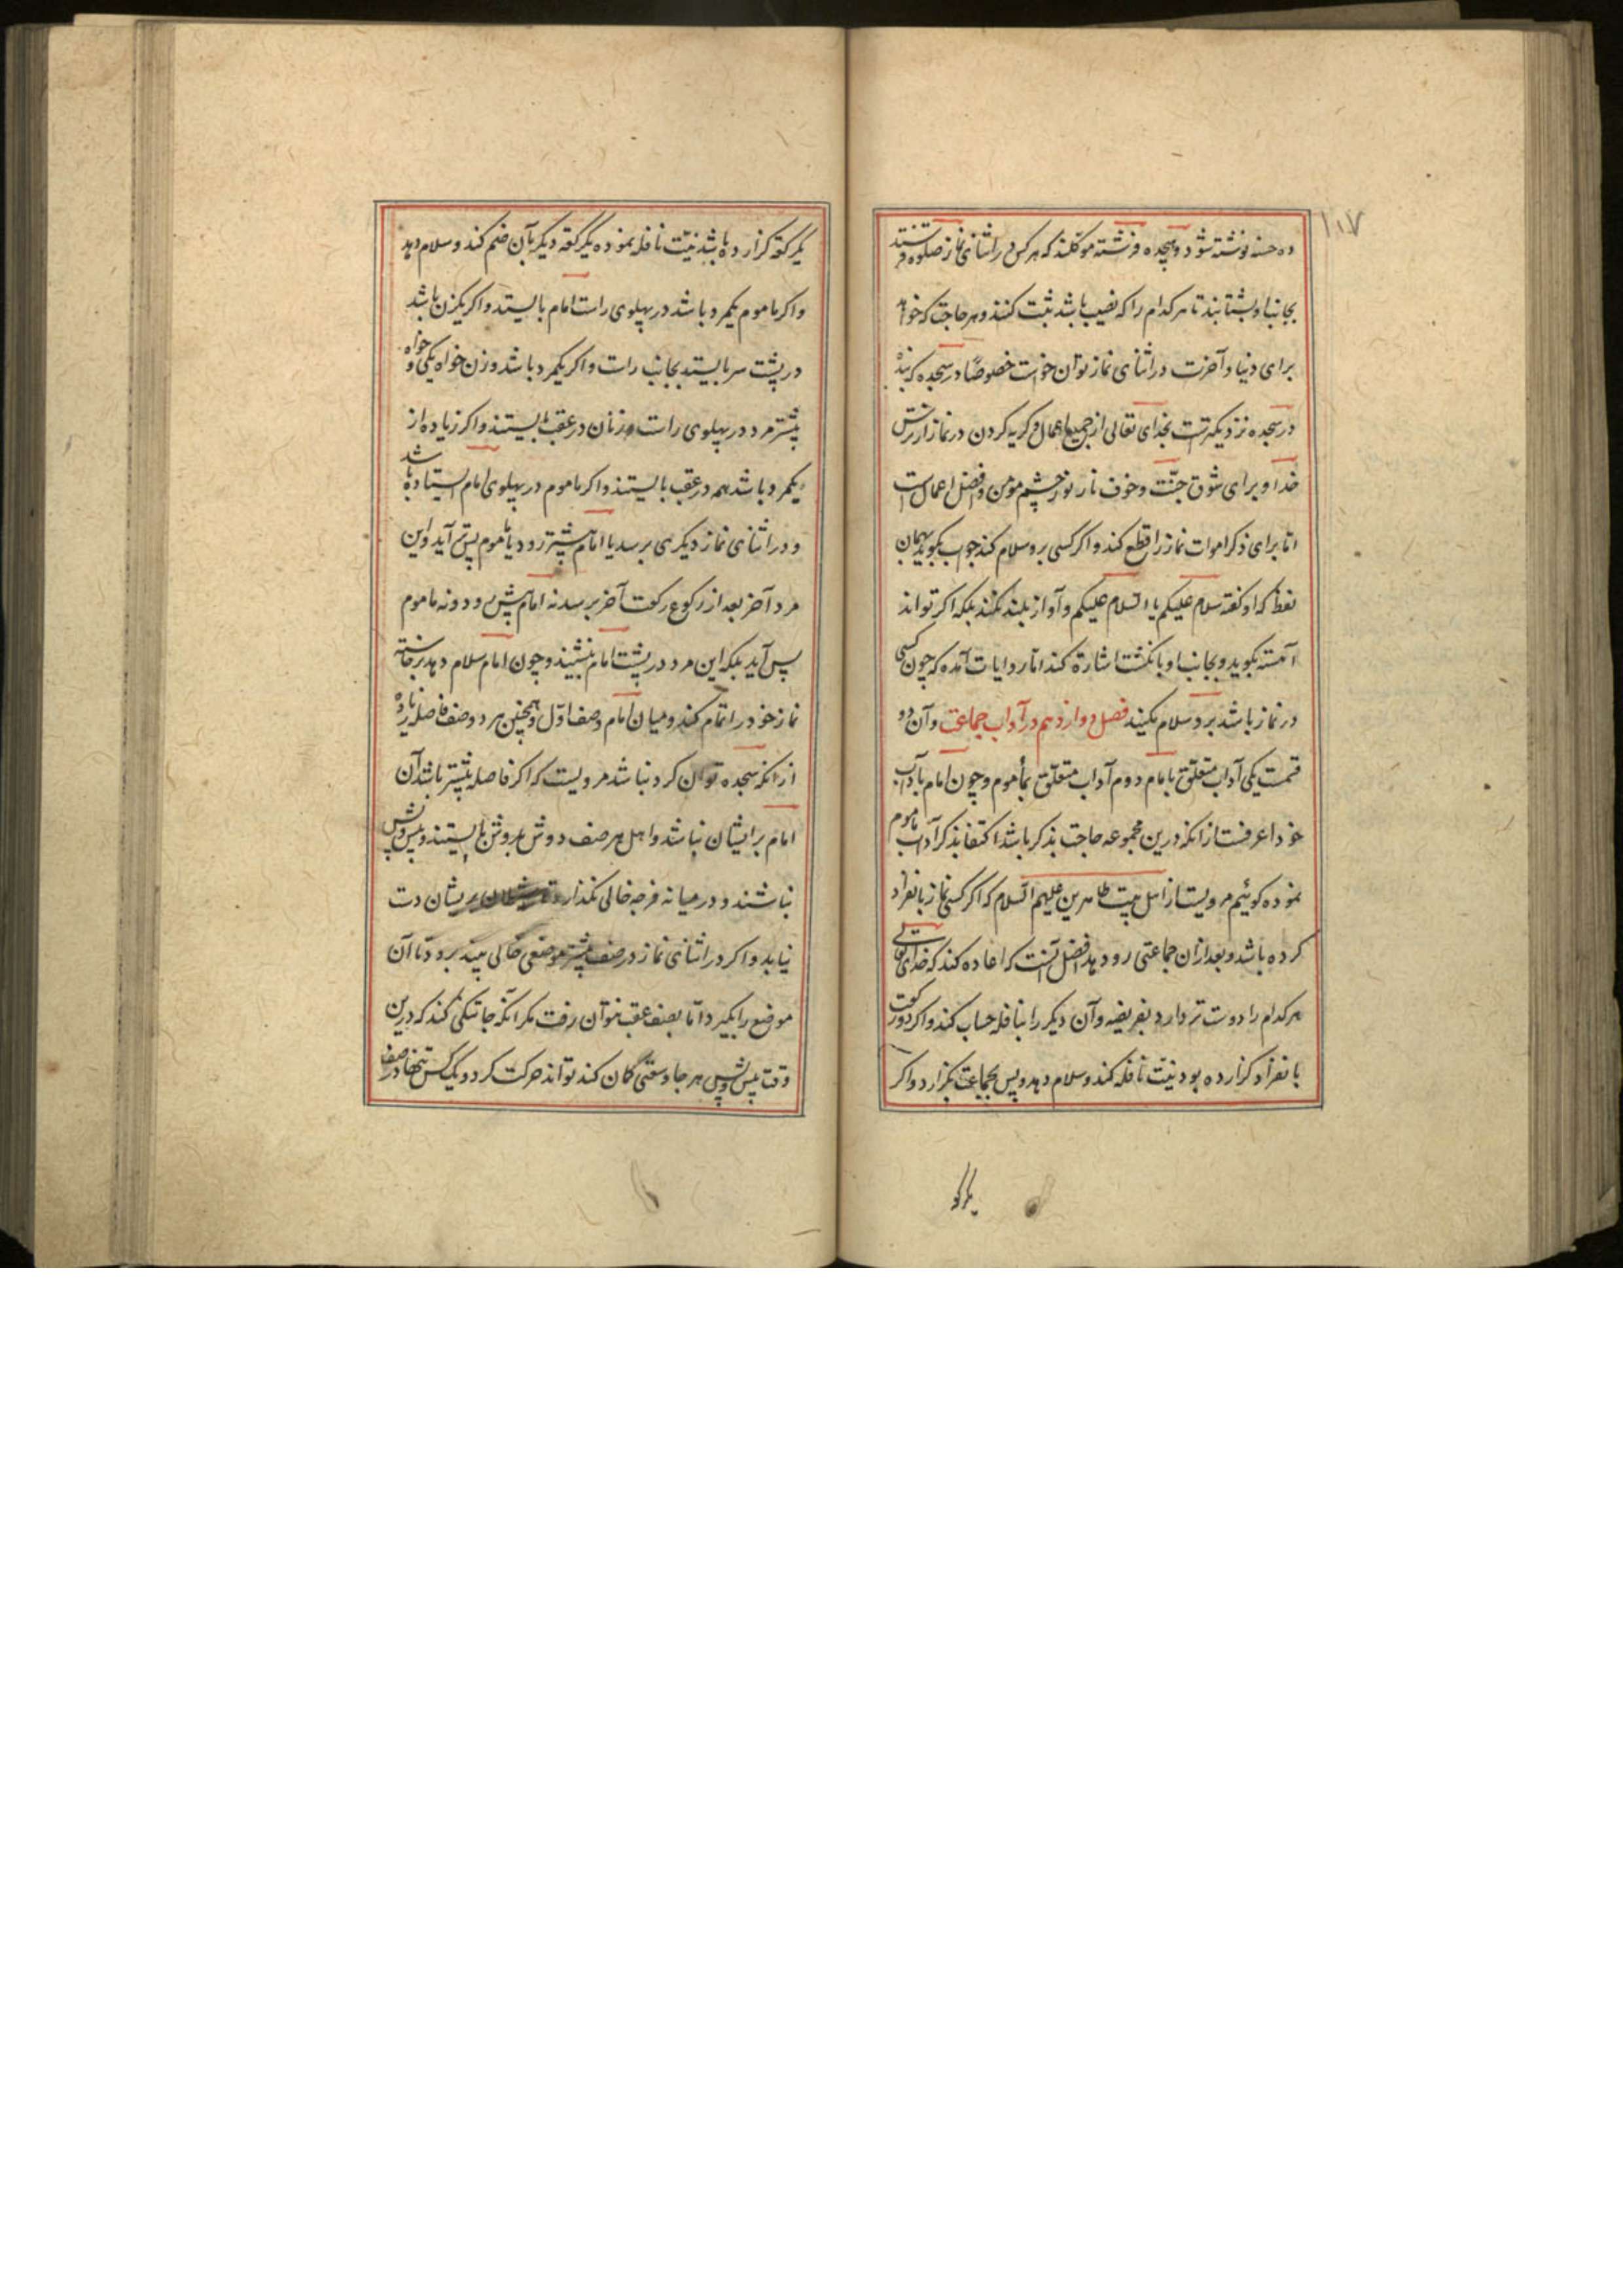 ۱۱۷
ده حسنه نوشته شود و هیجده فرشته موکلند که هر کس در اثنای نماز صلوة فرستند
بجانب او بشتابند تا هر کدام را که نصیب باشد ثبت کنند و هر حاجت که خواهد
برای دنیا و آخرت در اثنای نماز توان خواست خصوصًا در سجده که بنده
در سجده نزدیکترست بخدای تعالی از جمیع اعمال و کریه کردن در نماز از ترس
خدا و برای شوق جنّت و خوف نار نور چشم مؤمن و افضل اعمال است
امّا برای ذکر اموات نماز را قطع کند و اکر کسی برو سلام کند جواب بکوید بهمان
لفظ که او کفته سلام علیکم یا السلام علیکم و آواز بلند نکند بلکه اکر تواند
آهسته بکوید و بجانب او بانکشت اشارة کند امّا روایات آمده که چون کسی
در نماز باشد برو سلام مکنید فصل دوازدهم در آداب جماعت و آن دو
قسمت یکی آداب متعلّق بامام دوم آداب متعلّق بمأموم و چون امام بآداب
خود اعرفست از انکه درین مجموعه حاجت بذکر باشد اکتفا بذکر آداب ماموم
نموده کوئیم مرویست از اهل بیت طاهرین علیهم السلام که اکر کسی نماز بانفراد
کرده باشد و بعد از ان جماعتی رو دهد افضل آنست که اعاده کند که خدای تعالی
هر کدام را دوست تر دارد بفریضه و آن دیکر را بنافله حساب کند و اکر دو رکعت
بانفراد کزارده بود نیّت نافله کند و سلام دهد و پس بجماعت بکزارد و اکر
یکرکو
یکرکعة کزارده باشد نیّت نافله نموده یکرکعة دیکر بآن ضم کند و سلام دهد
و اکر ماموم یکمرد باشد در پهلوی راست امام بایستد و اکر یکزن باشد
در پشت سر بایستد بجانب راست و اکر یکمرد باشد و زن خواه یکی و خواه
بیشتر مرد در پهلوی راست و زنان در عقب بایستند و اکر زیاده از
یکمرد باشد هم در عقب بایستند و اکر ماموم در پهلوی امام ایستاده باشد
و در اثنای نماز دیکری برسد یا امام پیشتر رود یا ماموم پس آید و این
مرد آخر بعد از رکوع رکعت آخر برسد نه امام پیش رود و نه ماموم
پس آید بلکه این مرد در پشت امام بنشیند و چون امام سلام دهد برخاسته
نماز خود را تمام کند و میان امام و صف اوّل و همچنین هر دو صف فاصله زیاده
از انکه سجده توان کرد نباشد مرویست که اکر فاصله بیشتر باشد آن
امام بر ایشان نباشد و اهل هر صف دوش بدوش بایستند و پس و پیش
نباشند و در میانه فرجه خالی نکذارند بریشان دست
نیابد و اکر در اثنای نماز در صف پیشتر موضعی خالی بیند برود تا آن
موضع را بکیرد امّا بصف عقب نتوان رفت مکر انکه جا تنکی کند که درین
وقت پیش و پس هر جا وسعتی کمان کند تواند حرکت کرد و یک کس تنها در صف